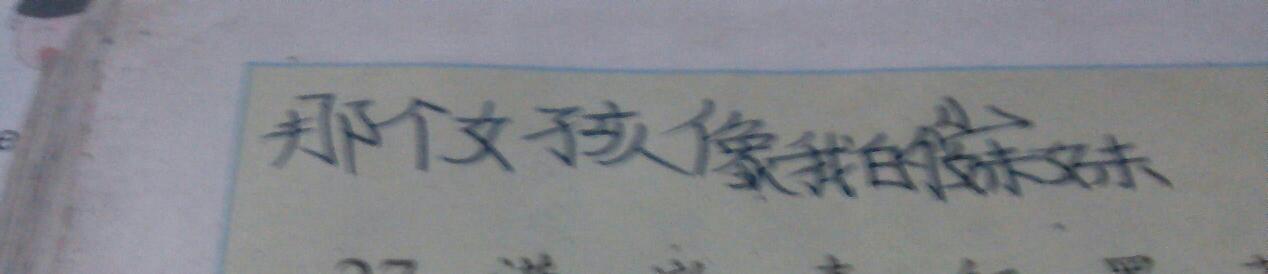 那个女孩像我的妹妹